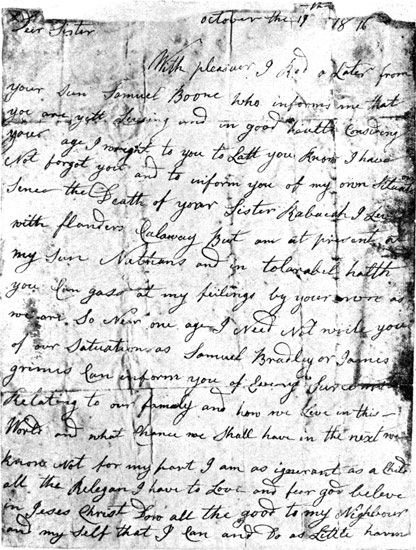 october the 19th 1816
Deer Sister
With pleasuer I Red a Later from
your Sun Samuel Boone who informs me that
you are yett Leving and in good health Considing
your age I wright to you to Latt you know I have
Not forgot you and to inform you of my own Situation
Sence the Death of your Sister Rabacah I Leve
with flanders Calaway But am at present at
my Sun Nathans and in tolarabel halth
you Can gass at my feilings by your own as
we are So Near one age I Need Not write you
of our Satuation as Samuel Bradley or James
grimes Can inform you of Every Surcumstance
Relating to our famaly and how we Live in this
World and what Chance we Shall have in the next we
know Not for my part I am as ignerant as a Child
all the Relegan I have to Love and fear god beleve
in Jeses Christ Dow all the good to my Nighbour
and my self that I Can and Do as Little harm